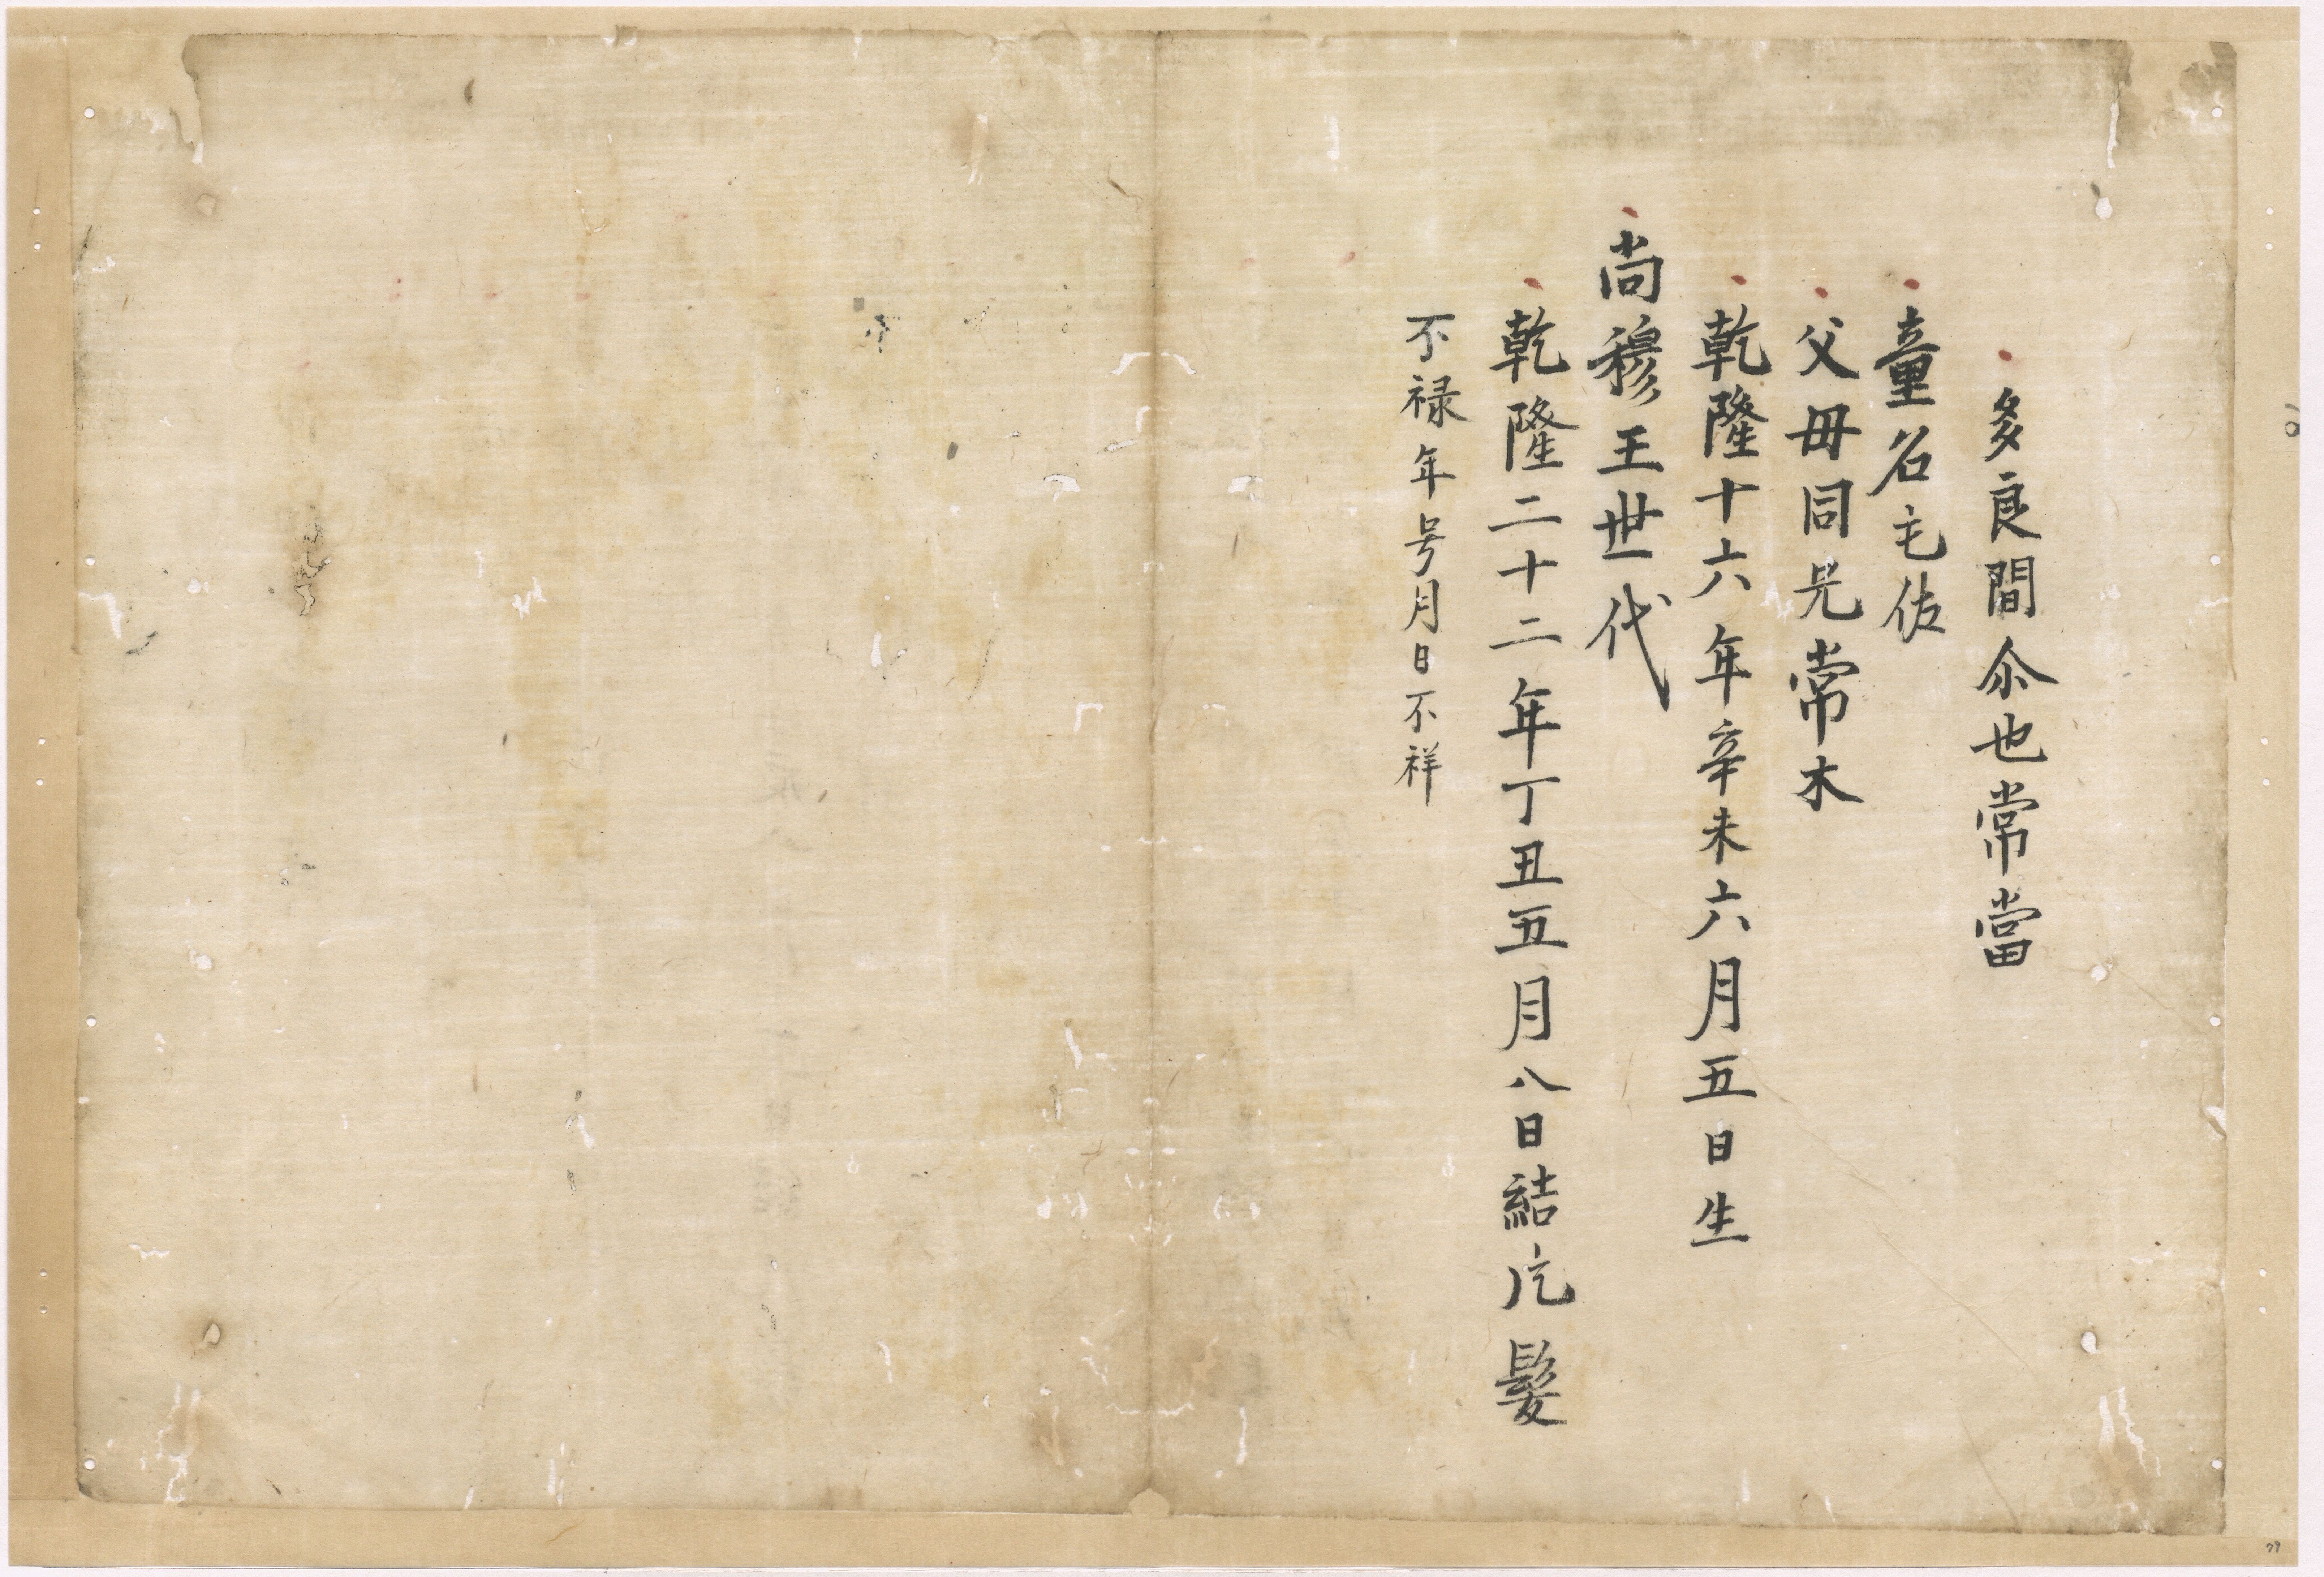 多良間尒也常當
童名乇佐
父毋同兄常木
乾隆十六年辛未六月五日生
尚穆王世代
乾隆二十二年丁丑五月八日結片髮
不禄年号月日不祥